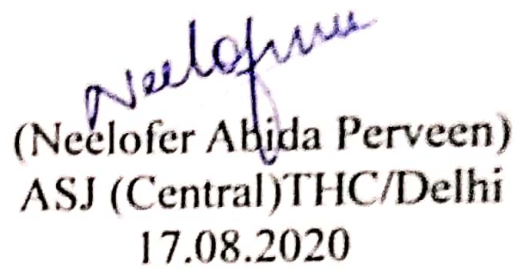 Neelofer
(Neelofer Abida Perveen)
ASJ (Central)THC/Delhi
17.08.2020